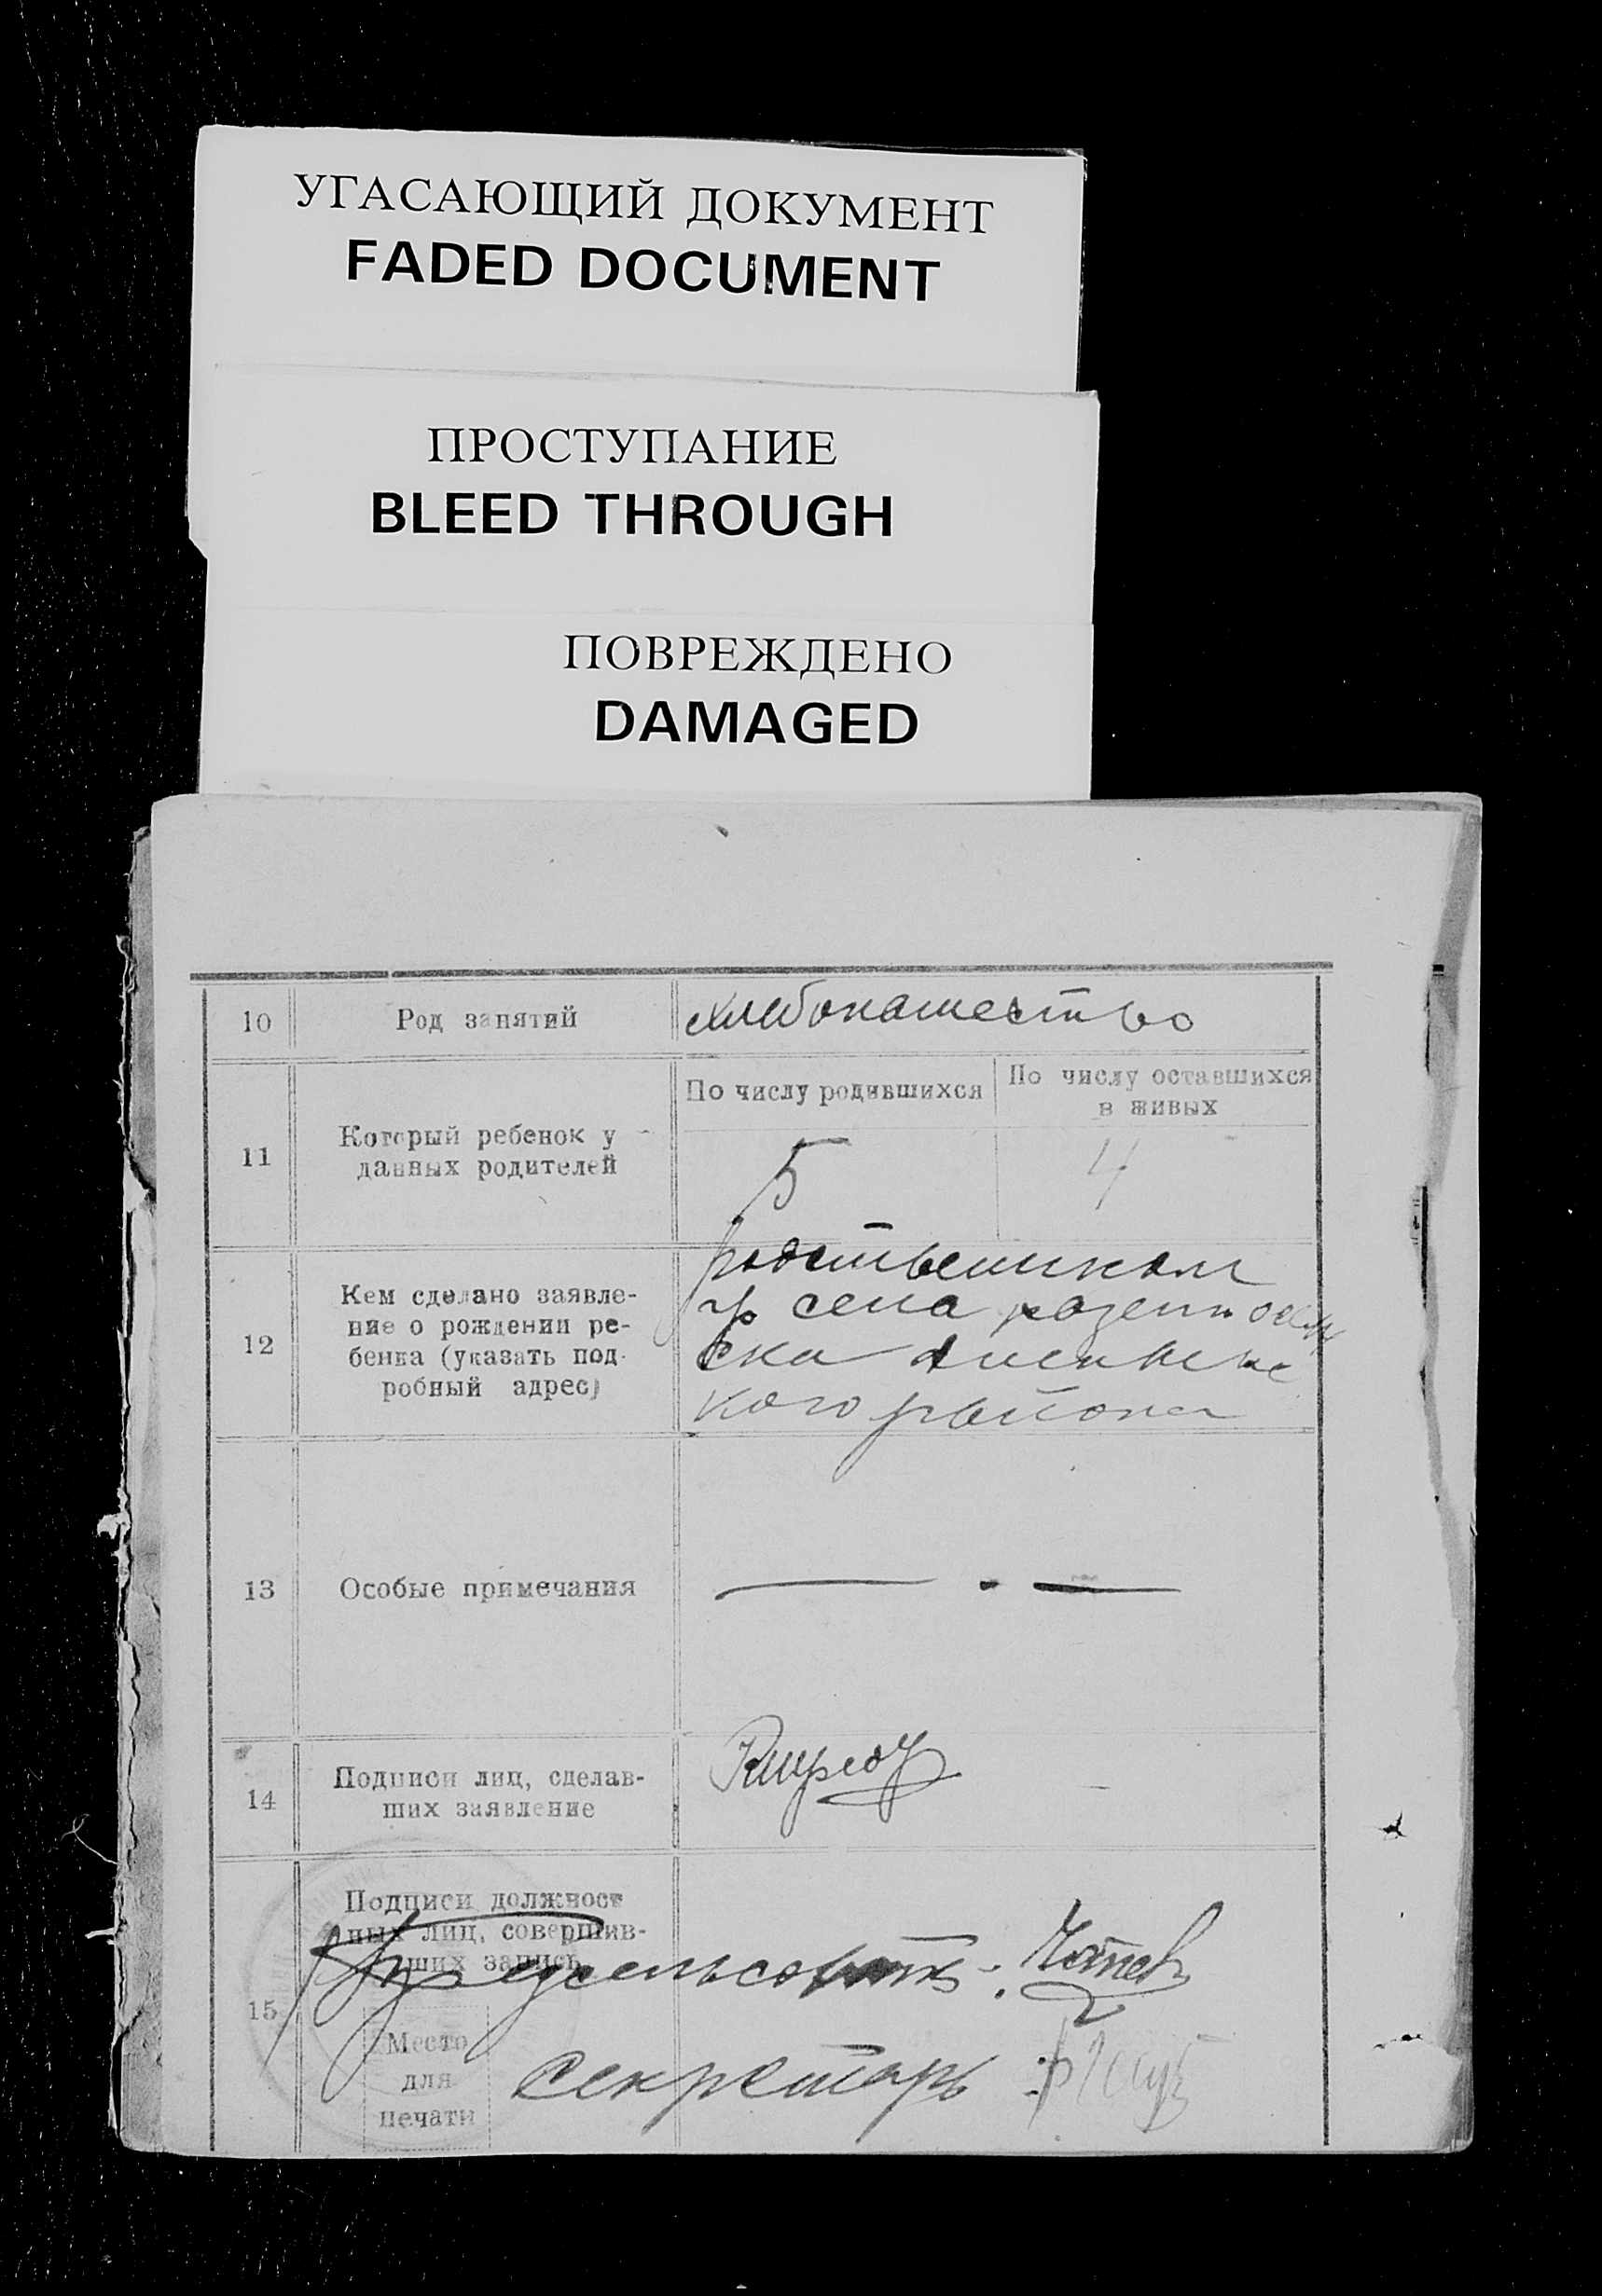 УГАСАЮЩИЙ ДОКУМЕНТ
FADED DOCUMENT
ПРОСТУПАНИЕ
BLEED THROUGH
ПОВРЕЖДЕНО
DAMAGED
10 Род занятий хлебопашество
11 Который ребенок у данных родителей
По числу родившихся
По числу оставшихся
в живых
5 4
12 Кем сделано заявле-
ние о рождении ре-
бенка (указать под-
робный адрес)
родственником
гр села
ского района
13 Особые примечания
14 Подписи лиц, сделав-
ших заявление
15 Подписи должност
ных лиц, совершив-
ших запись
Предсельсовета:
Место
для
печати
секретарь: